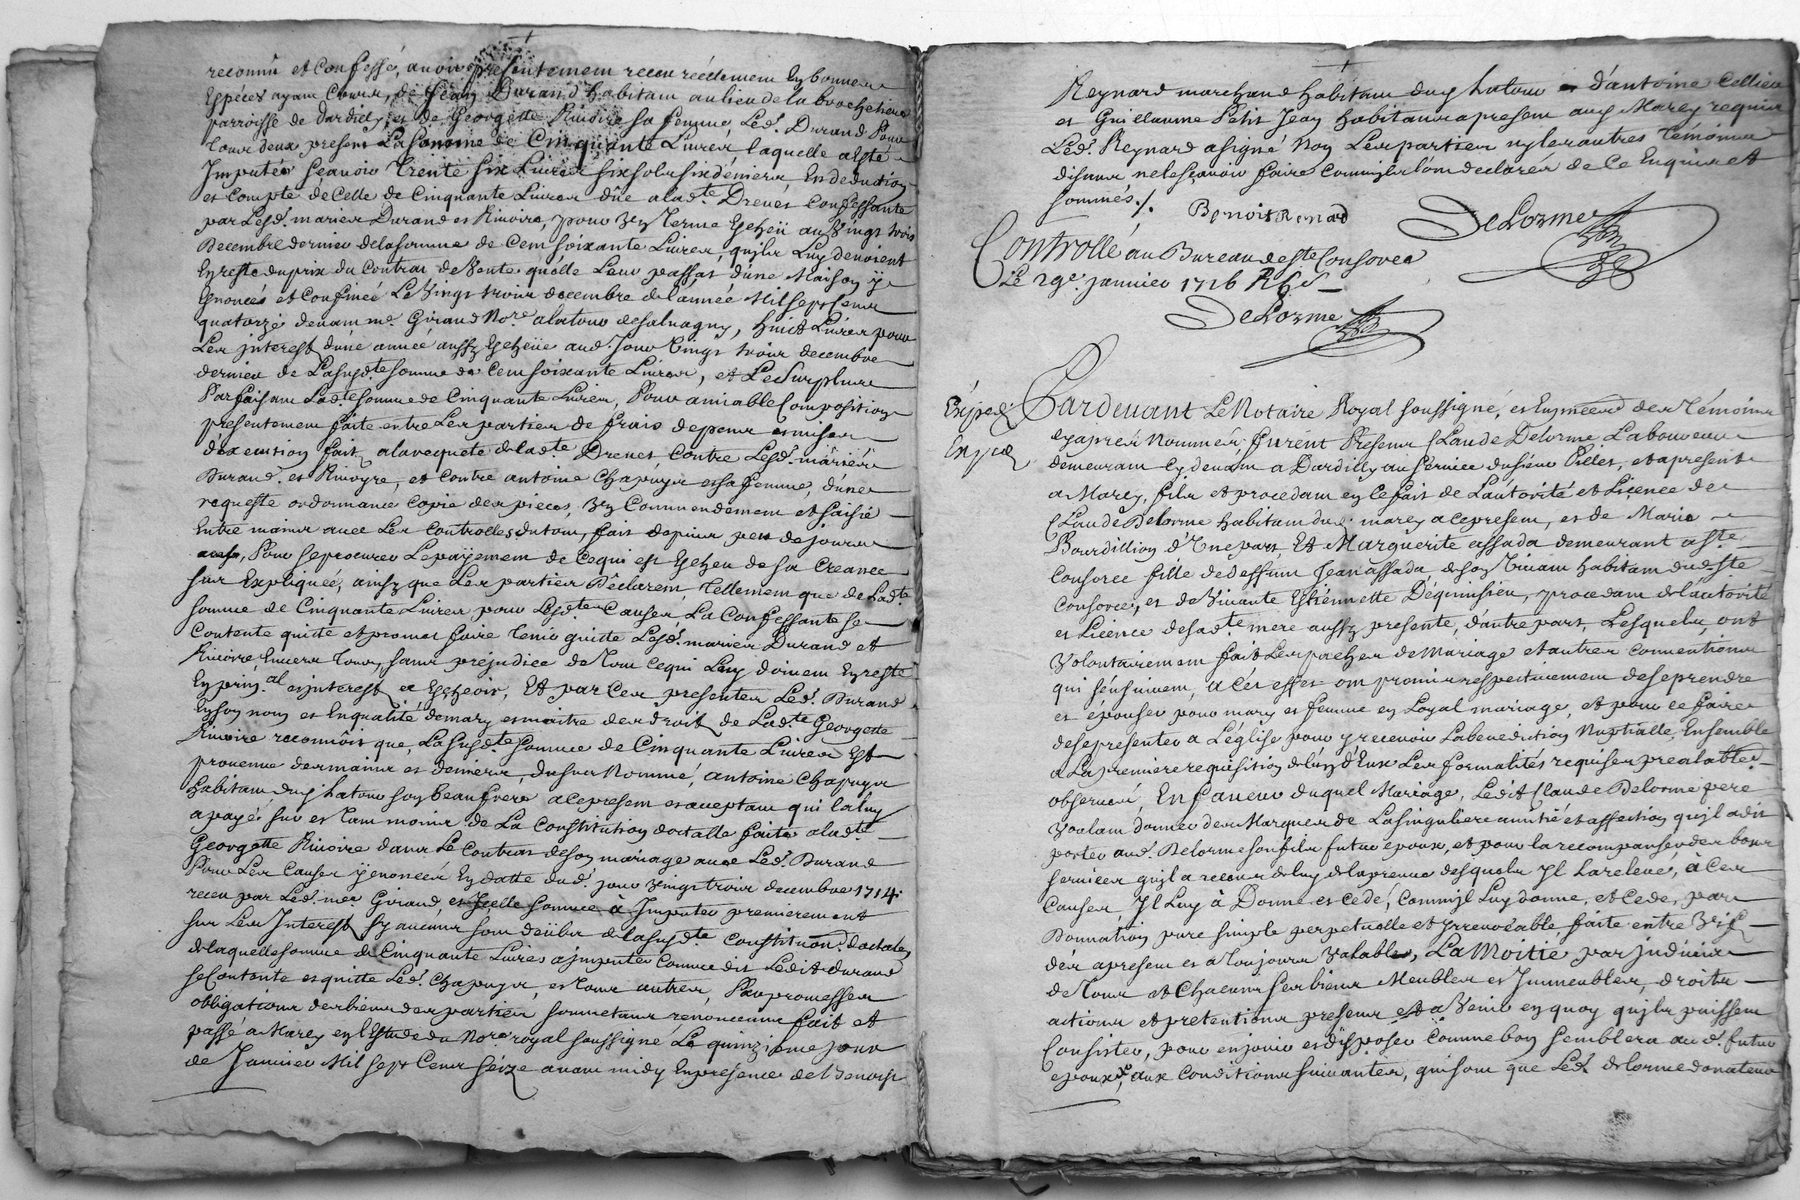 reconnu et confessé, avoir presentement receu réellement En bonnes
Espéces ayant cours, de Jean Durand habitant au lieu de la brochetiere
parroisse de dardilly, et de Georgette Rivoire sa femme, Led. Durand pour
tous deux present La somme de Cinquante Livres, laquelle a esté
Imputéé scavoir trente six Livres six sols six deniers, En deduction
et compte de celle de Cinquante Livres düe a lad.te Drevet Confessante
par Lesd. mariés Durand et Rivoire, pour Un terme Escheü au Vingt trois
Decembre dernier de la somme de Cent soixante Livres, quils Luy devoient
En reste du prix du contrat de Vente quélle Leur passat d'une Maison y
Enoncéé et confinéé Le Vingt trois decembre de l'année Mil sept cent
quatorze devant me. Giraud No.re a la tour de Salvagny, huict Livres pour
Les interest d'une année aussy Escheüe aud. Jour Vingt trois decembre
dernier de La susd.te somme de Cent soixante Livres, et Le Surplus
Parfaisant Lad.te somme de Cinquante Livres, Pour amiable Composition
presentement faite entre Les parties de frais depens et mises
d'éxecution fait a la requete de lad.te Drevet Contre Lesd. mariés
Durand et Rivoyre, et contre antoine Chapuys et sa femme, d'une
requeste ordonnance copie des pieces, Un Commendement et saisie
Entre mains avec Les Controlles du tout, fait depuis peu de jours
Pour se procurer Le payement de ce qui est Escheu de sa Creance
sus Expliquéé, ainsy que Les parties Déclarent tellement que de Lad.te
somme de Cinquante Livres pour Lesd.tes Causes, La Confessante se
Contente quitte et promet faire tenir quitte Lesd. mariés Durand et
Rivoire, Envers tous, sans prejudice de tout ce qui Luy doivent En reste
En prin.al et interest et Escheoir, Et par ces presentes Led. Durand
En son nom et En qualité de mary et maitre des droits de Lad.te Georgette
Rivoire reconnoit que, La susd.te somme de Cinquante Livres Est
provenue des mains et deniers du sus Nommé, antoine Chapuys
habitant dud. Latour son beau frere a ce present et acceptant qui la luy
a payé sur et tant moins de La Constitution dottalle faite a lad.te
Georgette Rivoire dans Le Contrat de son mariage avec Led. Durand
Pour Les Causes y enoncées En datte dud. jour vingt trois decembre 1714.
receu par Led. me. Giraud, et Icelle somme à Imputer premierement
sur Les Interest sy aucuns sont deübs de la susd.te constituon. dottale,
de laquelle somme de Cinquante Livres a imputer comme dit Ledit durand
se Contente et quitte Led. Chapuys, et tous autres, Par promesses
obligations des biens des parties soumettans renoncemens fait et
passé a Marcy en l'Estude du No.re royal soussigné Le quinzieme jour
de Janvier Mil sept Cent Seize avant midy En presence de Benoist
Reynard marchand habitant dud. Latour d'antoine Cellier
et Guillaume Petit Jean habitans a present aud. Marcy requis
Led. Reynard a signé Non Les parties ny les autres témoins
disant ne le sçavoir faire comme ils l'ont declarés de ce Enquis et
sommés./.
Benoist Renard
DeLorme
Controllé au Bureau de S.te Consorce
Le 29e. janvier 1716
DeLorme
Expedi
Expedi
Pardevant Le Notaire Royal soussigné, et En presence des témoins
cy aprés Nommés, furent Presens Claude Delorme Laboureur
demeurant cy devant a Dardilly au service du sieur Pillet, et a present
a Marcy, fils et procedant en ce fait de L'autorité et Licence de
Claude Delorme habitant dud. marcy a ce present, et de Marie
Bourdillion d'Une part, Et Marguerite assada demeurant a S.te
Consorce fille de deffunt Jean assada de son Vivant habitant dud. S.te
Consorce, et de Vivante Estiennette Déguisieu, procedant de l'autorité
et Licence de sad.te mere aussy presente, d'autre part, Lesquels, ont
Volontairement fait Les paches de Mariage et autres conventions
qui s'ensuivent, a Cet effet ont promis respectivement de se prendre
et épouser pour mary et femme en Loyal mariage, et pour ce faire
de se presenter a L'eglise pour y recevoir La benediction Nuptialle, Ensemble
a La premiere requisition de l'un d'Eux Les formalités requises prealables
observéé, En faveur duquel Mariage, Ledit Claude Delorme pere
voulant donner des Marques de La singuliere amitié et affection quil a dit
porter aud. Delorme son fils futur époux, et pour La recompanser des bons
services quil a receu de luy de la preuve desquels Il La relevé, à Ces
Causes, Il Luy à Donné et cedé, comm'il Luy donne, et cede, par
Donnation pure simple perpetuelle et Irrevocable faite entre Vifs
dés a present et a toujours Valable, La Moitié par Indivis
de tous et Chacuns ses biens Meubles et Immeubles, droits
actions et pretentions presens et a Venir en quoy quils puissent
Consister, pour en jouir et disposer comme bon semblera aud. futur
epoux, aux Conditions suivantes, qui sont que Led. delorme donateur